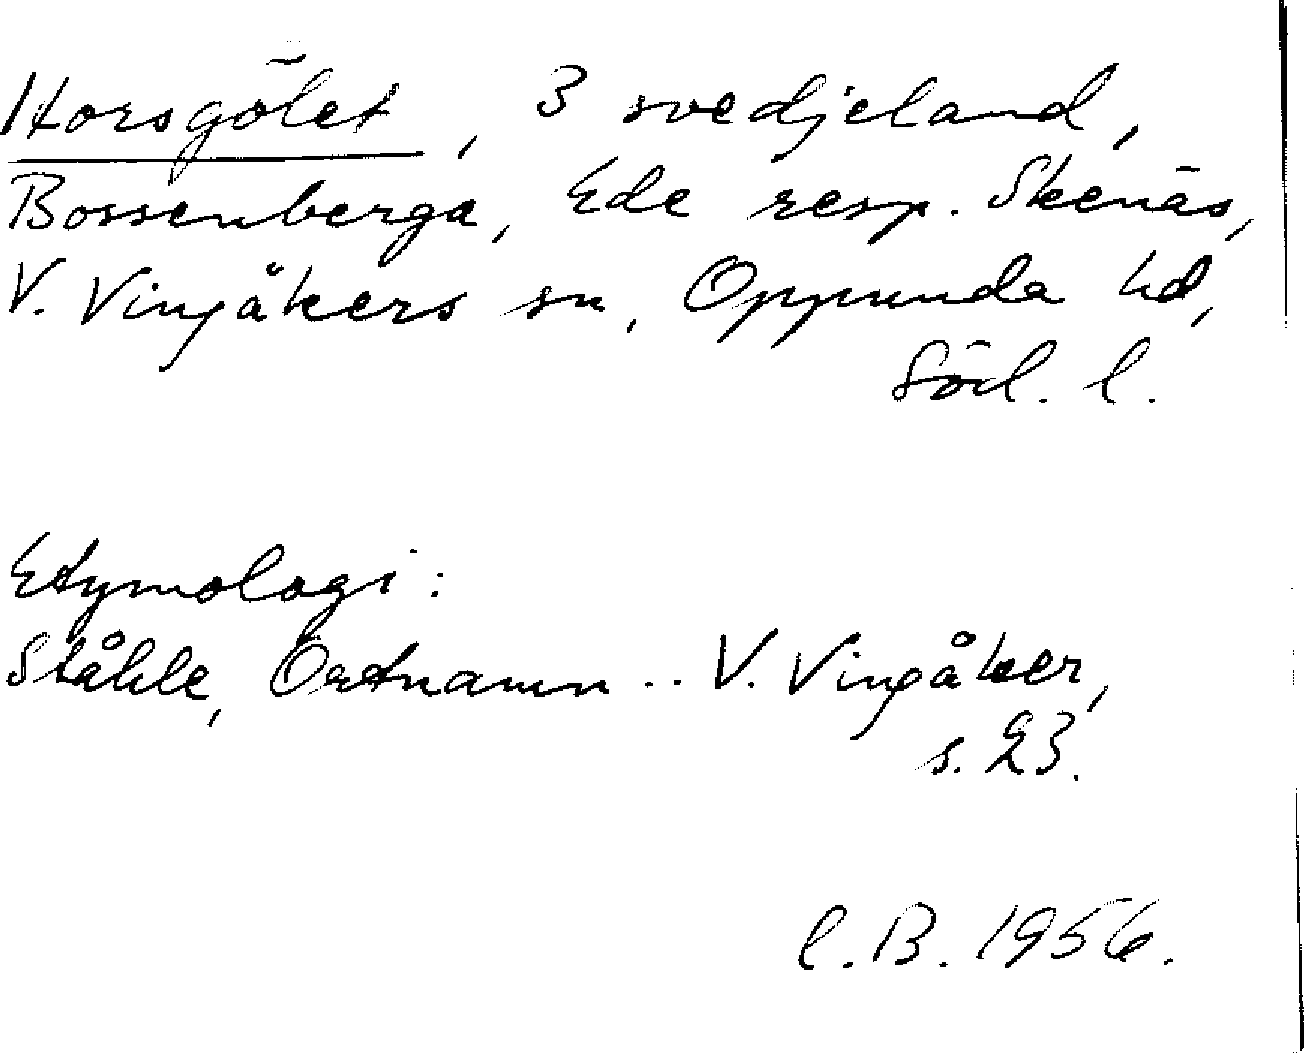 Horsgölet, 3 svedjeland,
Bossenberga, Ede resp. Skenäs,
V. Vingåkers sn, Oppunda hd,
Söd. l.
Etymologi:
Ståhle, Ortnamn .. V. Vingåker,
s. 23.
C. B. 1956.